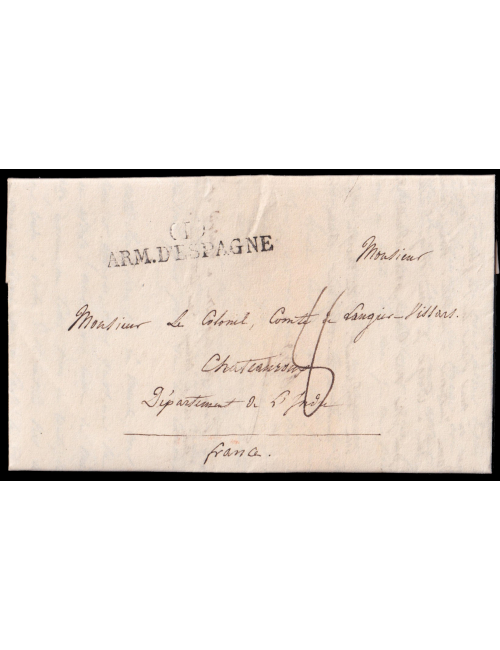 ARM. D'ESPAGNE
Monsieur
Monsieur Le Colonel, Comte de Laugier-Villars.
Chateauroux
Département de L'Indre
france.